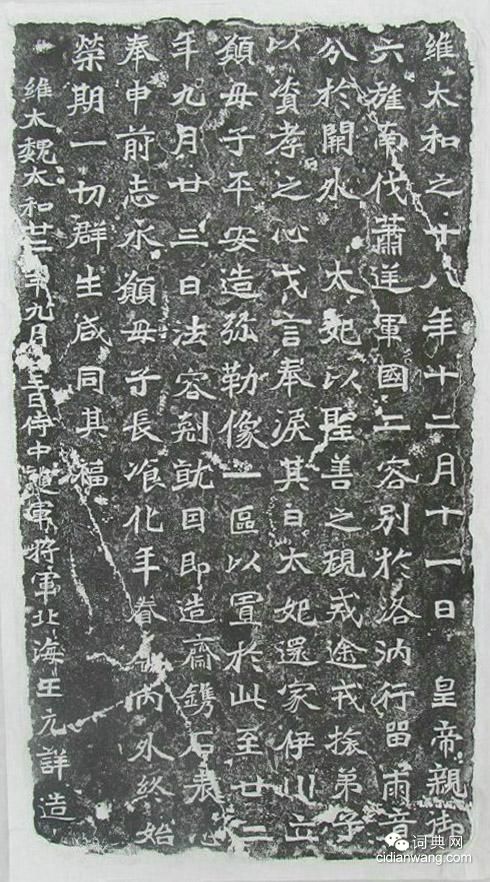 維太和之十八年十二月十一日 皇帝親御
六旌南伐蕭逆軍國二容別於洛汭行留兩音
分於闕外 太妃以聖善之規戒途戎旅弟子
以資孝之心戈言奉淚其日太妃還家伊川立
願母子平安造弥勒像一區以置於此至廿二
年九月廿三日法容剋就因即造齋鐫石表心
奉申前志永願母子長飡化年眷属內外終始
榮期一切群生咸同其福
維大魏太和廿二年九月廿三日侍中護軍將軍北海王元詳造
词典网
cidianwang.com